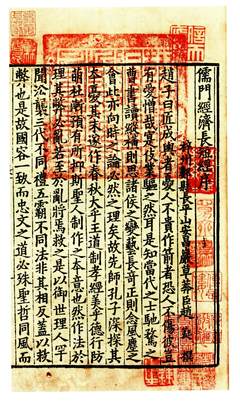 儒門經濟長短經序
梓州郪縣長平山安昌巖草莽臣趙蕤撰
趙子曰匠成輿者憂人不貴作箭者恐人不傷彼豈
有愛憎哉寔伎業驅之然耳是知當代之士馳騖
之曹書讀縱橫則思諸侯之變藝長奇正則念風塵之
會此亦向時之論必然之理矣故先師孔子深探其
本憂其末遂作春秋大乎王道制孝經美乎德行防
萌杜漸預有所抑斯聖人制作之本意也然作法於
理其弊必亂若至於亂將焉救之是以御世理人罕
聞沿襲三代不同禮五霸不同法非其相反蓋以救
弊也是故國容一致而忠文之道必殊聖哲同風而